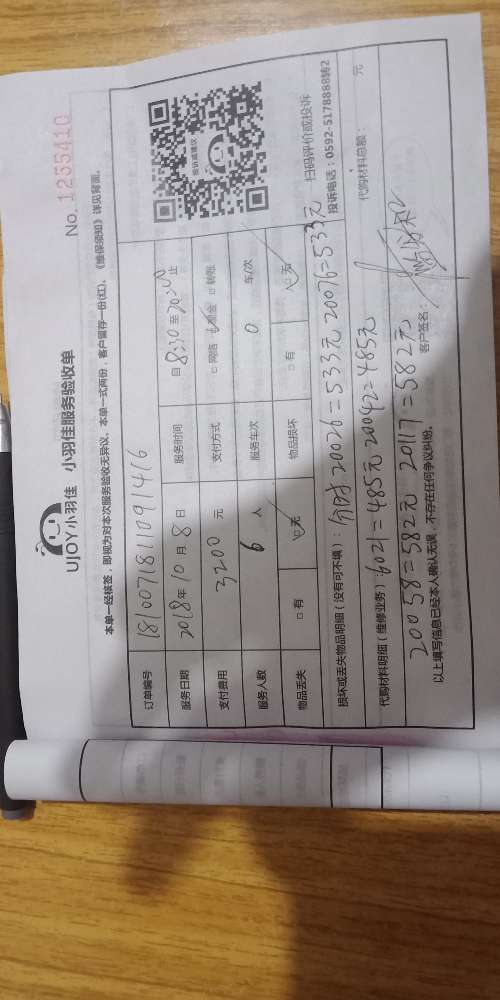 UJOY小羽佳 小羽佳服务验收单 No. 1255410
本单一经核签，即视为对本次服务验收无异议。本单一式两份，客户留存一份(红)，《维保须知》详见背面。
订单编号 181007181109 1416
服务日期 2018年10月8日 服务时间 自8:30至20:00止
支付费用 3200元 支付方式 □网络 □现金 □转账
服务人数 6人 服务车次 0车/次
物品丢失 □有 □无 物品损坏 □有 □无
扫码评价或投诉
投诉电话：0592-5178888转2
损坏或丢失物品明细（没有可不填）：分时20026=533元 20076=533元
代购材料明细（维修业务）：6021=485元 20092=485元 代购材料总额： 元
20058=582元 20117=582元
以上填写信息已经本人确认无误，不存在任何争议纠纷。 客户签名：